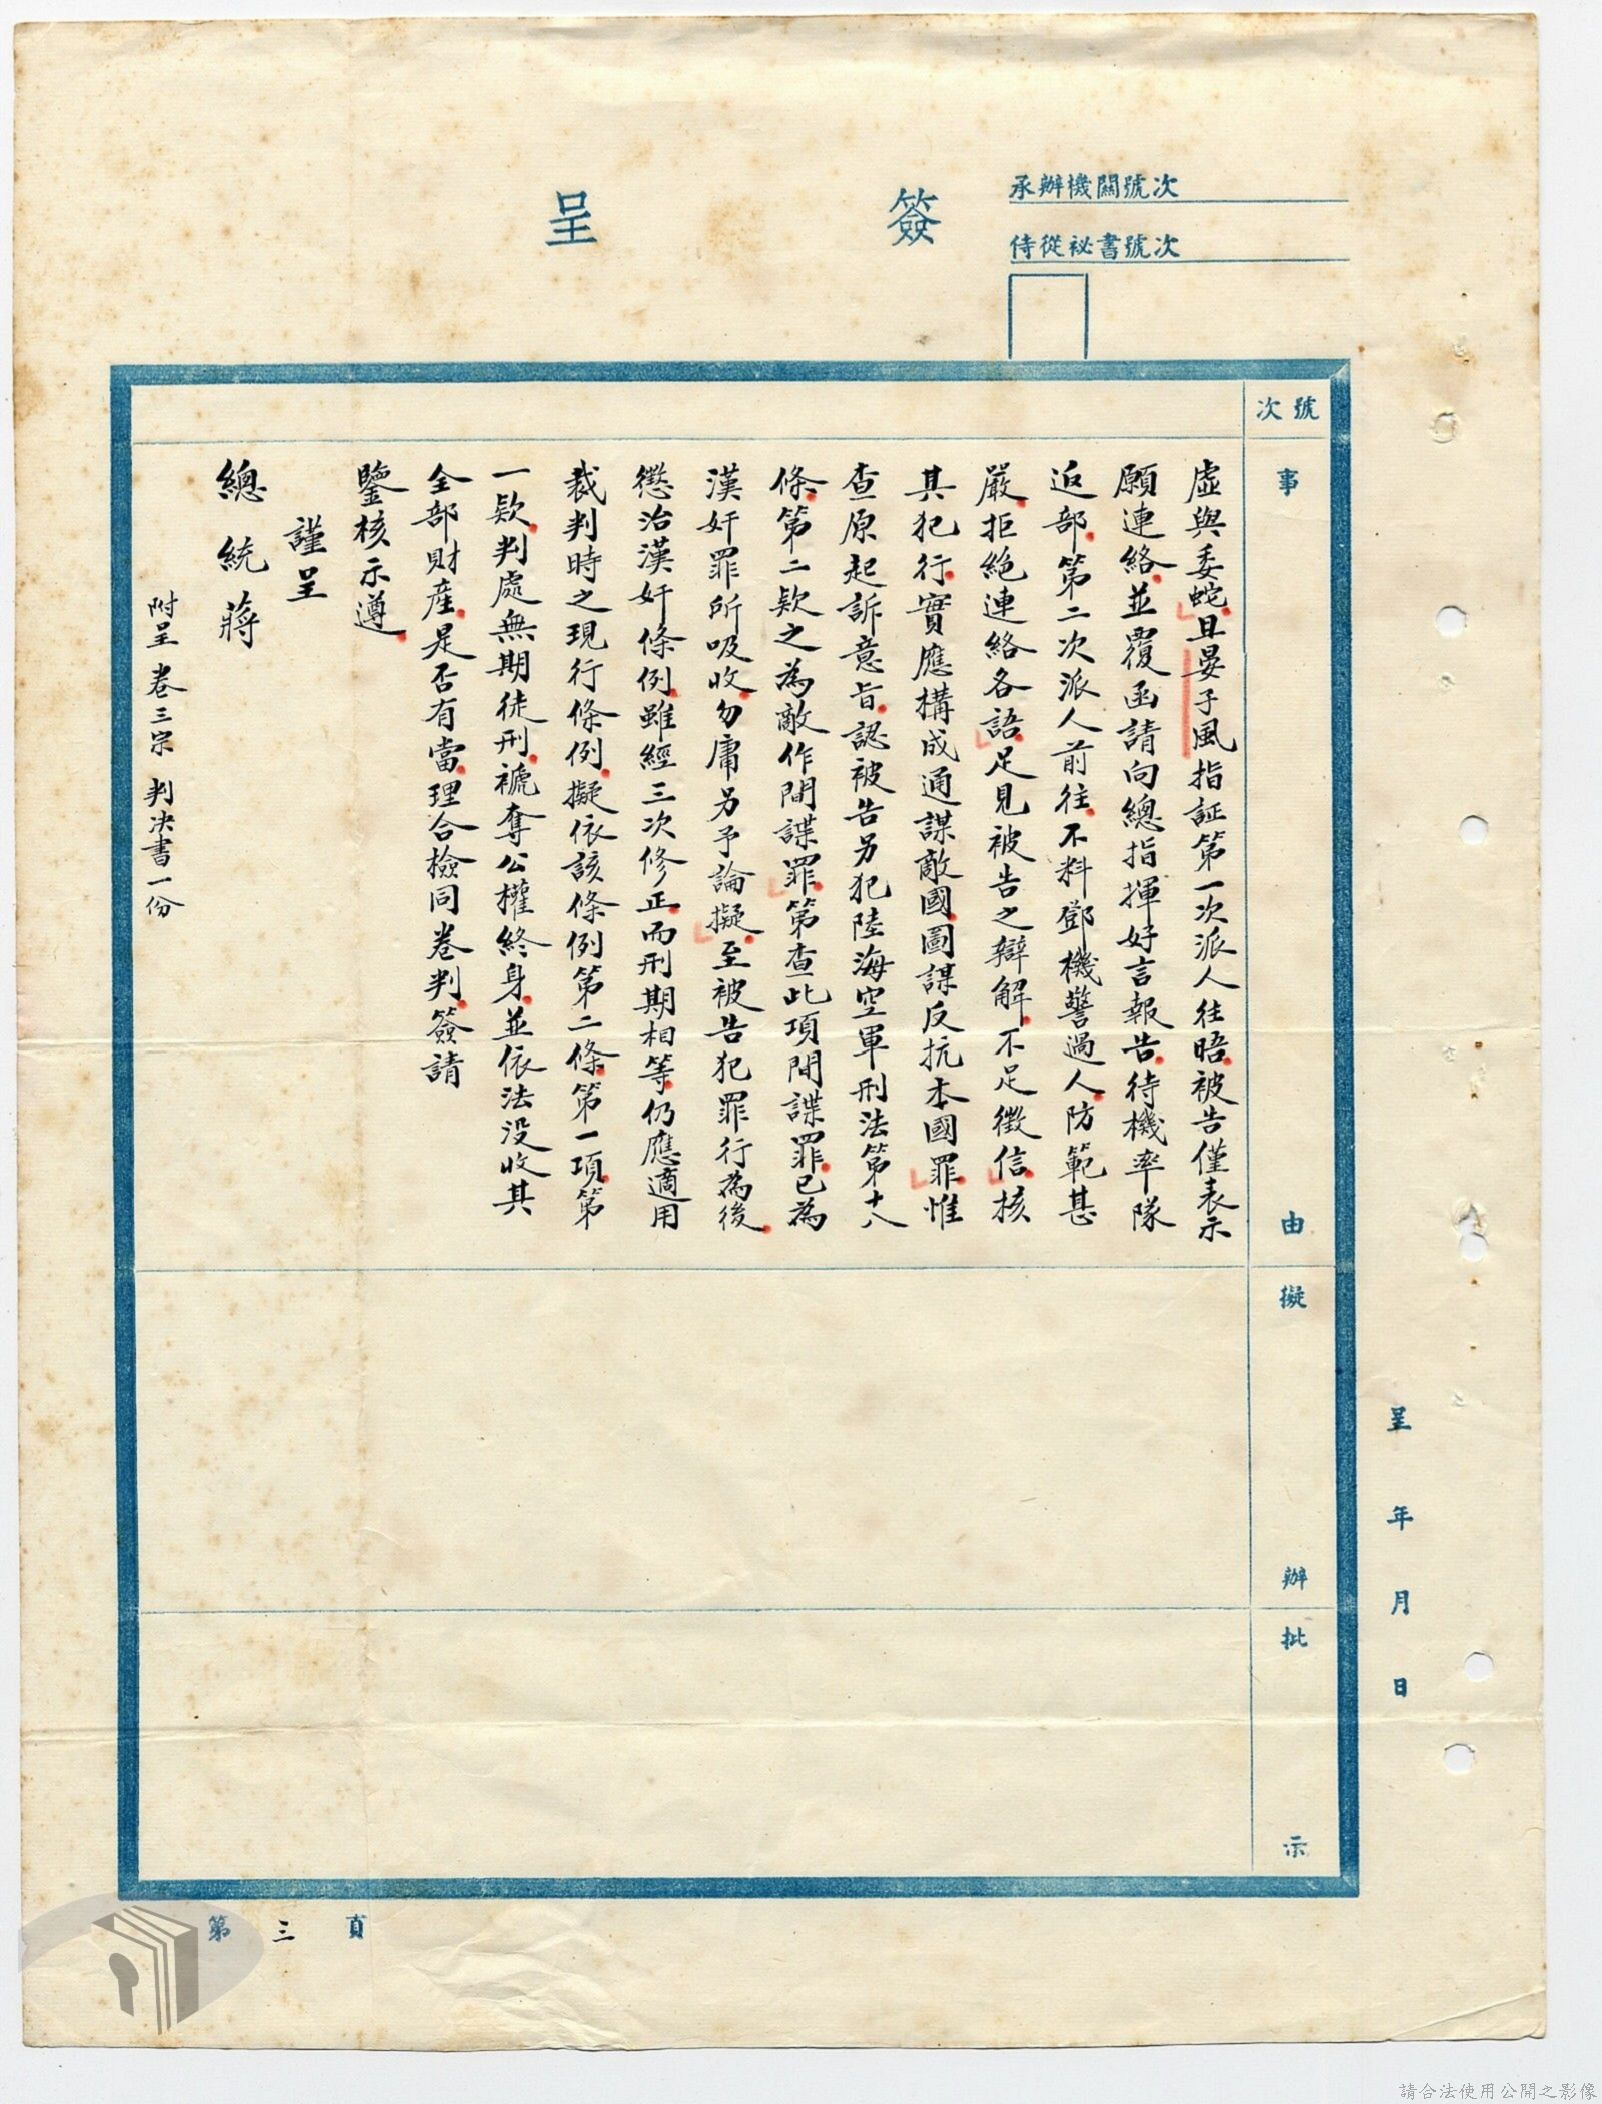 簽呈
承辦機關號次
侍從祕書號次
號次
事由
擬辦
批示
虛與委蛇且晏子風指証第一次派人往晤被告僅表示
願連絡並覆函請向總指揮好言報告待機率隊
返部第二次派人前往不料鄧機警過人防範甚
嚴拒絕連絡各語足見被告之辯解不足徵信核
其犯行實應構成通謀敵國圖謀反抗本國罪惟
查原起訴意旨認被告另犯陸海空軍刑法第十八
條第二款之為敵作間諜罪第查此項間諜罪已為
漢奸罪所吸收勿庸另予論擬至被告犯罪行為後
懲治漢奸條例雖經三次修正而刑期相等仍應適用
裁判時之現行條例擬依該條例第二條第一項第
一款判處無期徒刑褫奪公權終身並依法沒收其
全部財產是否有當理合檢同卷判簽請
鑒核示遵
謹呈
總統蔣
附呈卷三宗 判决書一份
呈 年 月 日
第三頁
請合法使用公開之影像